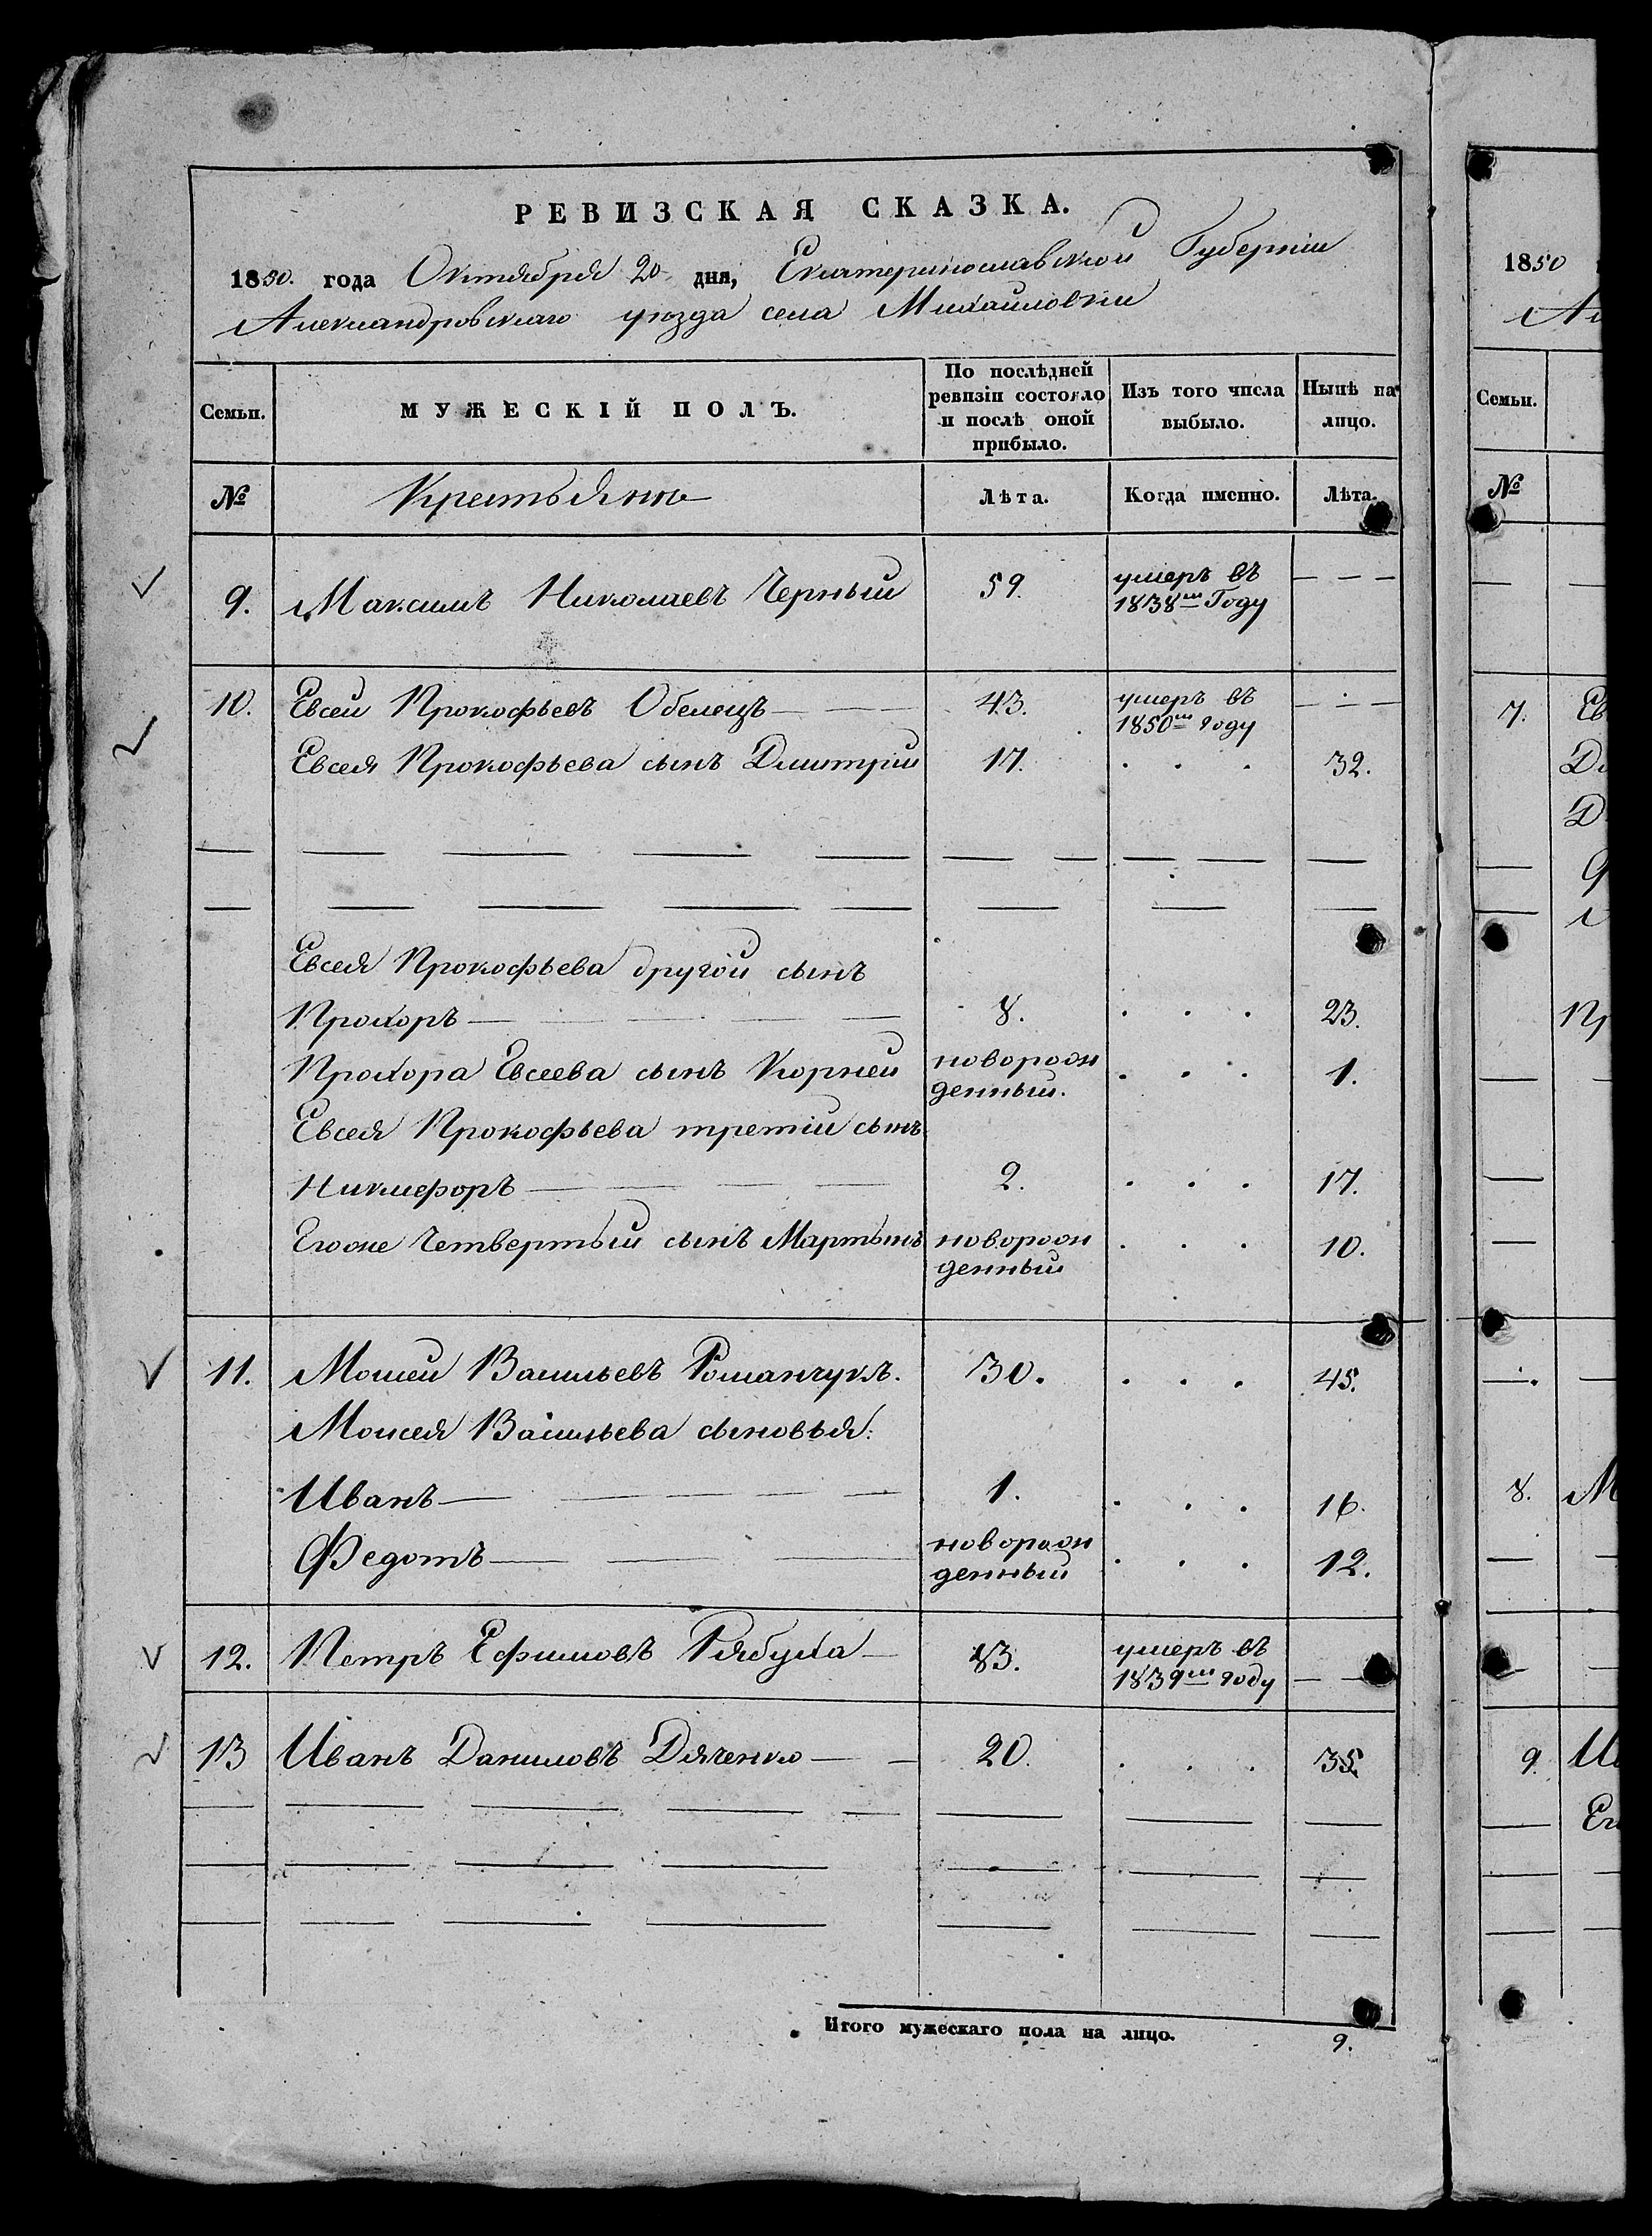 РЕВИЗСКАЯ СКАЗКА.
1850. года Октября 20 дня, Екатеринославской Губерніи
Александровскаго уѣзда села Михайловки
Семьи. МУЖЕСКІЙ ПОЛЪ. По послѣдней ревизіи состояло и послѣ оной прибыло. Изъ того числа выбыло. Нынѣ на лицо.
№ Крестьяне Лѣта. Когда именно. Лѣта.
9. Максимъ Николаевъ Черный 59. умеръ въ 1838мъ Году
10. Евсей Прокофьевъ Обелецъ 43. умеръ въ 1850мъ году
Евсея Прокофьева сынъ Дмитрій 17. 32.
Евсея Прокофьева другой сынъ
Прохоръ 8. 23.
Прохора Евсеева сынъ Корней новорожденный. 1.
Евсея Прокофьева третій сынъ
Никифоръ 2. 17.
Егоже Четвертый сынъ Мартынъ новорожденный 10.
11. Мойсей Васильевъ Романчукъ. 30. 45.
Моисея Васильева сыновья:
Иванъ 1. 16.
Федотъ новорожденный 12.
12. Петръ Ефимовъ Рябуха 83. умеръ въ 1839мъ году
13 Иванъ Даниловъ Дяченко 20. 35.
Итого мужескаго пола на лицо. 9.
1850
Семьи.
№
7. Ев
Д
Пр
8. М
9. Ив
Ег